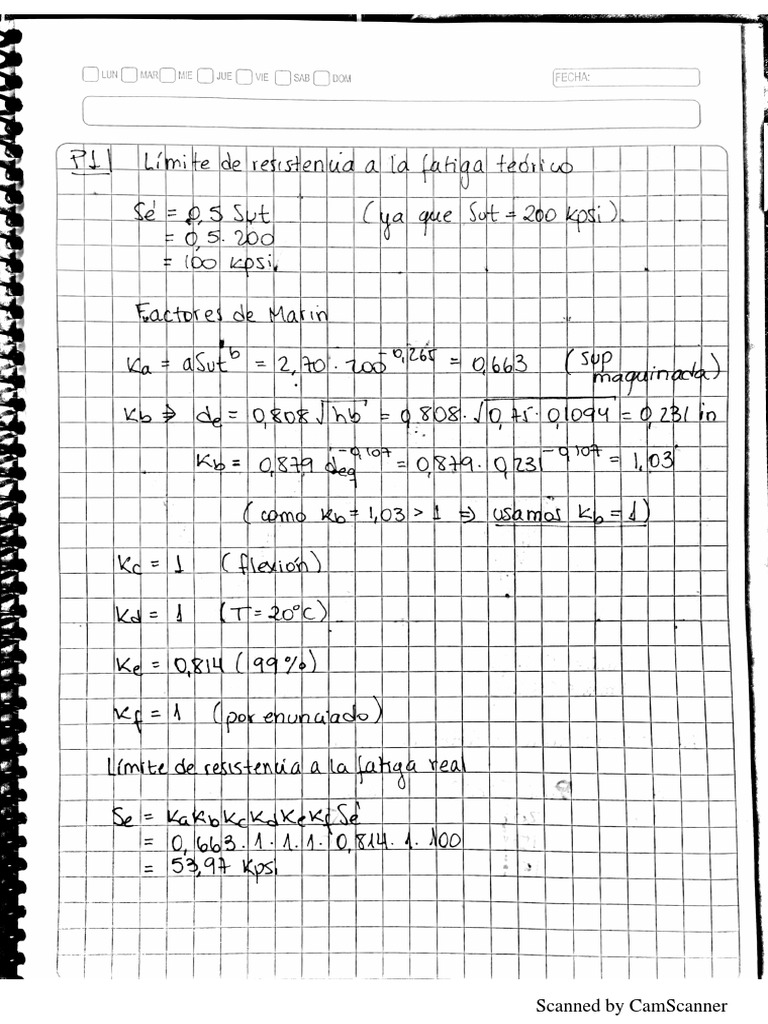 LUN MAR MIE JUE VIE SAB DOM FECHA:
P1 Límite de resistencia a la fatiga teórico
Sé = 0,5 Sut (ya que Sut = 200 kpsi).
= 0,5 · 200
= 100 kpsi.
Factores de Marin
Ka = aSut^b = 2,70 · 200^-0,265 = 0,663 (sup maquinada)
Kb ⇒ de = 0,808 √hb = 0,808 · √0,75 · 0,1094 = 0,231 in
Kb = 0,879 deq^-0,107 = 0,879 · 0,231^-0,107 = 1,03
(como Kb = 1,03 > 1 ⇒ usamos Kb = 1)
Kc = 1 (flexión)
Kd = 1 (T = 20°C)
Ke = 0,814 (99%)
Kf = 1 (por enunciado)
Límite de resistencia a la fatiga real
Se = KaKbKcKdKeKfSé
= 0,663 · 1 · 1 · 1 · 0,814 · 1 · 100
= 53,97 Kpsi
Scanned by CamScanner